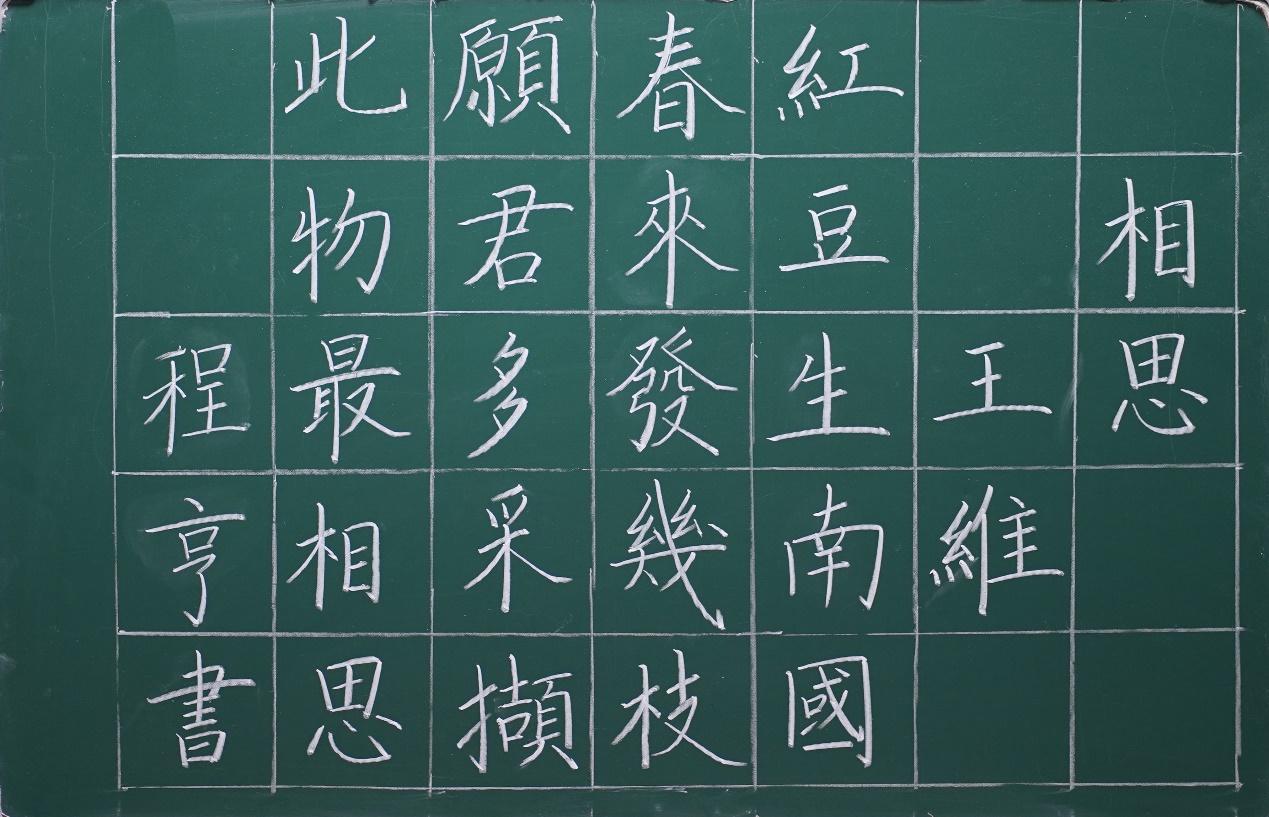 相思
王維
紅豆生南國
春來發幾枝
願君多采擷
此物最相思
程亨書